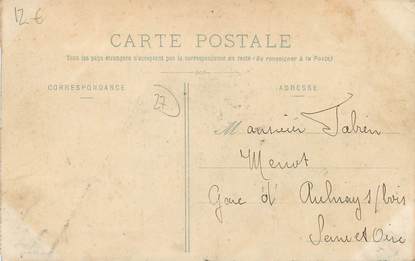 12 €
CARTE POSTALE
Tous les pays étrangers n'acceptent pas la correspondance au recto (Se renseigner à la Poste)
CORRESPONDANCE
ADRESSE
27
Monsieur Fabien
Menot
Gare d' Aulnay s/bois
Seine et Oise